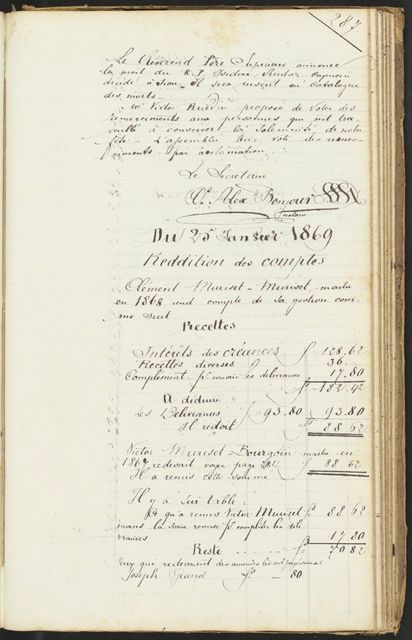 287
Le Révérend Père Supérieur annonce
la mort du R. P. Isidore capucin
décédé à Sion. Il sera inscrit au Catalogue
des morts.
Mr Victor propose de voter des
remerciements aux personnes qui ont tra-
vaillé à conserver la solennité de notre
fête. L'assemblée vote des remer-
ciements par acclamation.
Le Secrétaire
Alex Bonjour
Du 25 Janvier 1869
Reddition des comptes
Clément Murisel-Murisel, maître
en 1868 rend compte de sa gestion com-
me suit
Recettes
Intérêts des créances f 128.62
Recettes diverses f 36.
Complément pr couvrir les délivrances 17.80
f 182.42
A déduire
Les Délivrances f 93.80 93.80
Il redoit f 88.62
Victor Murisel-Bourgoin maître en
1867 redevait voyez page f 88.62
Il a remis cette somme
Il y a sur table:
Ce qu'a remis Victor Murisel f 88.62
mais la somme remise pr compléter les déli-
vrances 17.80
Reste f 70.82
Ceux qui redevaient des
Joseph f — 80